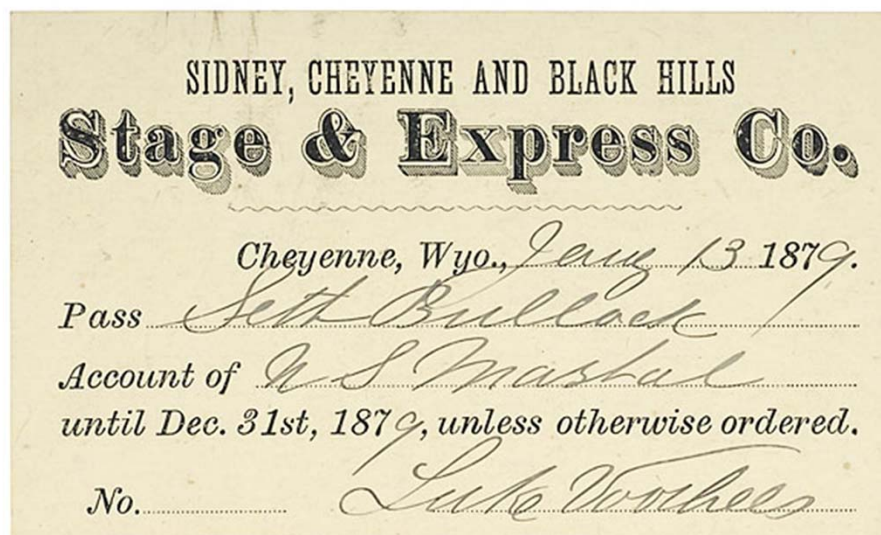 SIDNEY, CHEYENNE AND BLACK HILLS
Stage & Express Co.
Cheyenne, Wyo., Jany 13 1879.
Pass Seth Bullock
Account of U S Marshal
until Dec. 31st, 1879, unless otherwise ordered.
No. Luke Voorhees